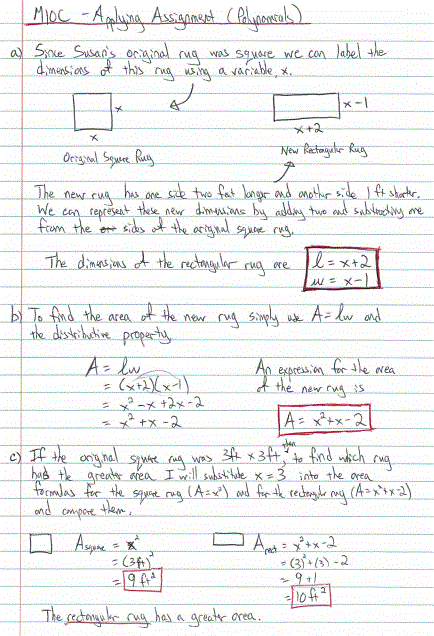 M10C - Applying Assignment (Polynomials)
a) Since Susan's original rug was square we can label the
dimensions of this rug using a variable, x.
x
x - 1
x
x + 2
Original Square Rug
New Rectangular Rug
The new rug has one side two feet longer and another side 1 ft shorter.
We can represent these new dimensions by adding two and subtracting one
from the sides of the original square rug.
The dimensions of the rectangular rug are
l = x+2
w = x-1
b) To find the area of the new rug simply use A = lw and
the distributive property
A = lw
= (x+2)(x-1)
= x² - x + 2x - 2
= x² + x - 2
An expression for the area
of the new rug is
A = x² + x - 2
c) If the original square rug was 3ft x 3ft, then to find which rug
has the greater area I will substitute x = 3 into the area
formulas for the square rug (A = x²) and for the rectangular rug (A = x² + x - 2)
and compare them.
A square = x²
= (3ft)²
= 9 ft²
A rect = x² + x - 2
= (3)² + (3) - 2
= 9 + 1
= 10 ft²
The rectangular rug has a greater area.